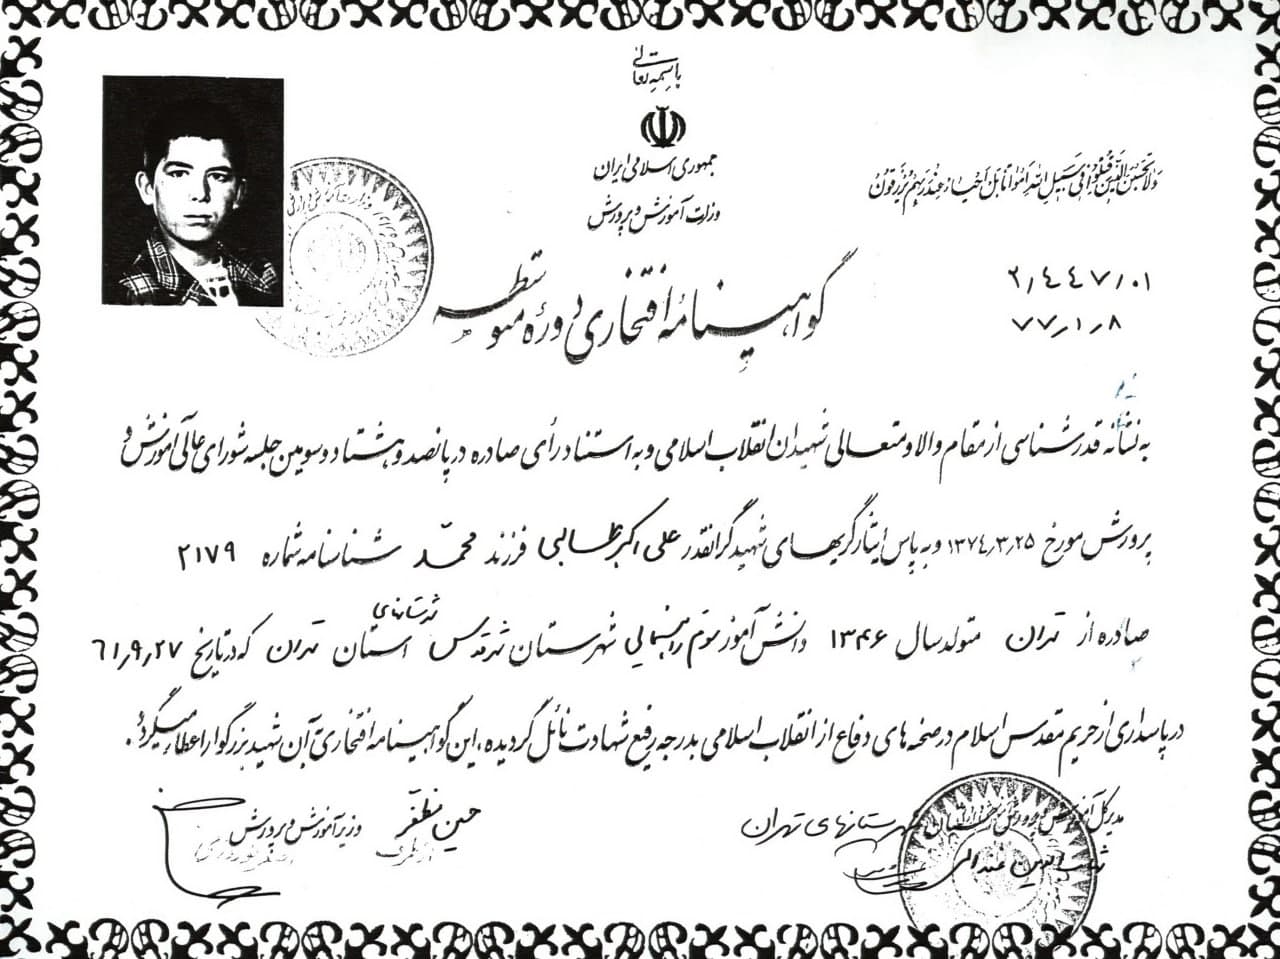 باسمه تعالی
جمهوری اسلامی ایران
وزارت آموزش و پرورش
ولا تحسبن الذین قتلوا فی سبیل الله امواتا بل احیاء عند ربهم یرزقون
۲٫۴۴۷٫۰۱
۷۷٫۱٫۸
گواهینامهٔ افتخاری دورهٔ متوسطه
به نشانه قدرشناسی از مقام والا و متعالی شهیدان انقلاب اسلامی و به استناد رأی صادره در پانصد و هشتاد و سومین جلسه شورای عالی آموزش و
پرورش مورخ ۱۳۷۴٫۳٫۲۵ و به پاس ایثارگریهای شهید گرانقدر علی اکبر طالبی فرزند محمّد شناسنامه شماره ۲۱۷۹
صادره از تهران متولد سال ۱۳۴۶ دانش آموز سوم راهنمایی شهرستان شهرقدس شهرستانهای استان تهران که در تاریخ ۶۱٫۹٫۲۷
در پاسداری از حریم مقدس اسلام در صحنه های دفاع از انقلاب اسلامی بدرجه رفیع شهادت نائل گردیده، این گواهینامه افتخاری آن شهید بزرگوار اعطاء میگردد.
مدیر کل آموزش و پرورش شهرستانهای تهران
حسین مظفر
وزیر آموزش و پرورش
از طرف